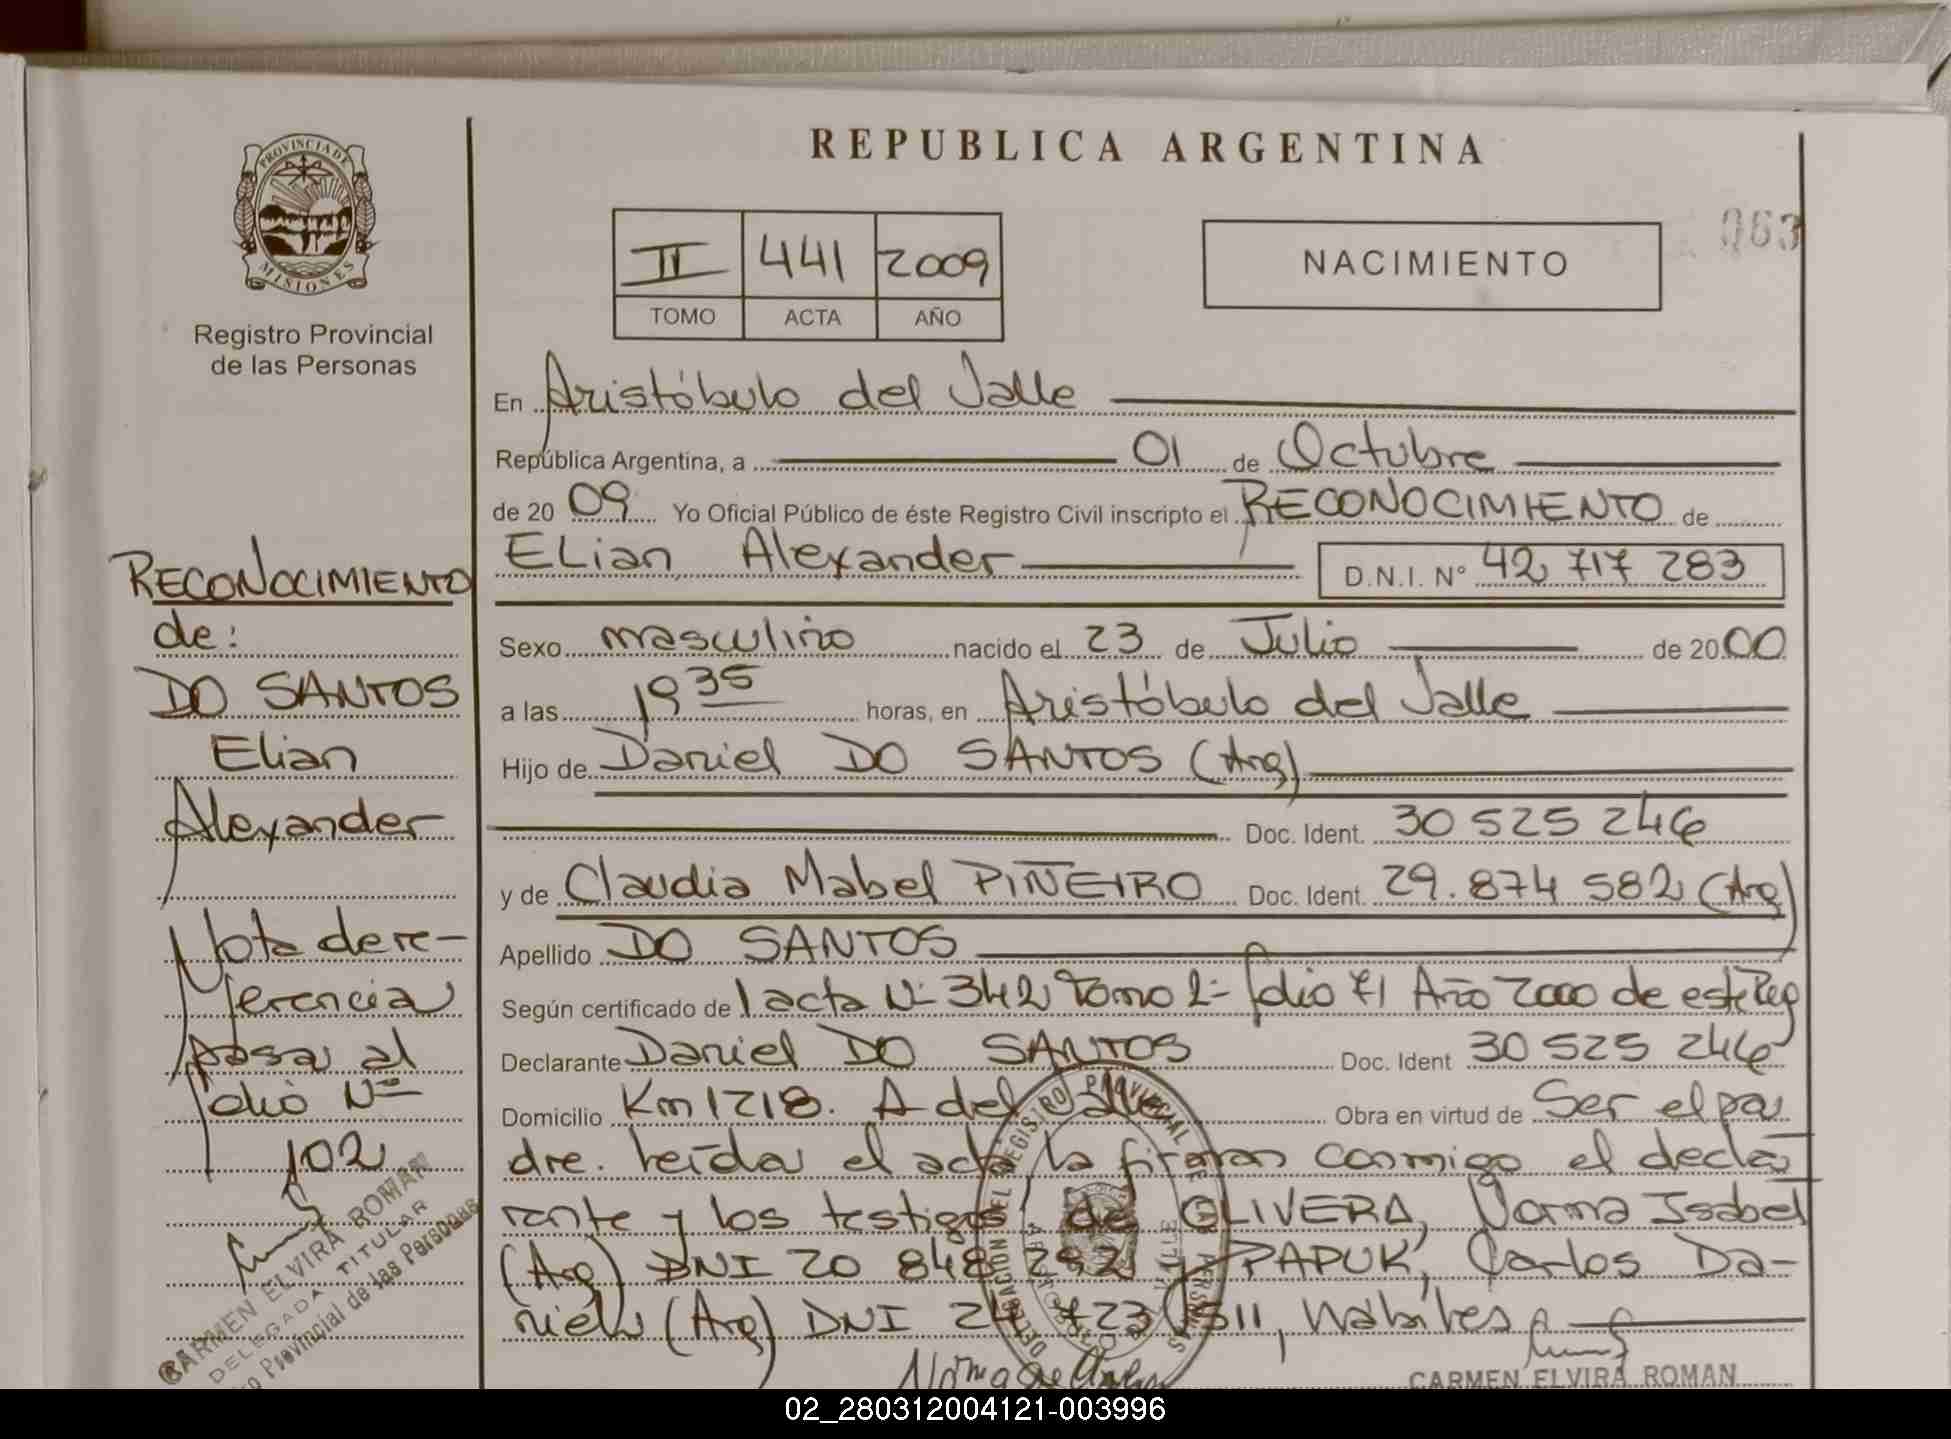 REPUBLICA ARGENTINA
PROVINCIA DE
MISIONES
Registro Provincial
de las Personas
II 441 2009
TOMO ACTA AÑO
NACIMIENTO
063
En Aristóbulo del Valle
República Argentina, a 01 de Octubre
de 20 09 Yo Oficial Público de éste Registro Civil inscripto el RECONOCIMIENTO de
ELian Alexander D.N.I. N° 42 717 283
Sexo masculino nacido el 23 de Julio de 20 00
a las 19 35 horas, en Aristóbulo del Valle
Hijo de Daniel DO SANTOS (Arg)
Doc. Ident. 30 525 246
y de Claudia Mabel PIÑEIRO Doc. Ident. 29.874 582 (Arg)
Apellido DO SANTOS
Según certificado de l acta N- 342 Tomo 2- folio 71 Año 2000 de este Reg
Declarante Daniel DO SANTOS Doc. Ident 30 525 246
Domicilio Km 1218. A del Valle Obra en virtud de Ser el pa
dre. Leída el acta la firman conmigo el decla
rante y los testigos de OLIVERA, Norma Isabel
(Arg) DNI 20 848 292 y PAPUK, Carlos Da-
niel (Arg) DNI 24 723 511, hábiles
CARMEN ELVIRA ROMAN
RECONOCIMIENTO
de:
DO SANTOS
Elian
Alexander
Nota de re-
ferencia
pasa al
folio N-
102
CARMEN ELVIRA ROMAN
DELEGADA TITULAR
Provincial de las Personas
02_280312004121-003996